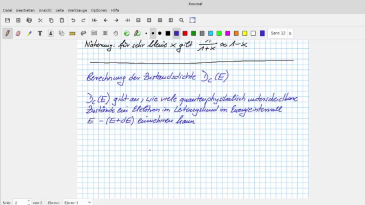 Xournal
Datei Bearbeiten Ansicht Seite Werkzeuge Optionen Hilfe
Sans 12
Näherung: für sehr kleine x gilt 1/1+x ≈ 1-x
Berechnung der Zustandsdichte D_c(E)
D_c(E) gibt an, wie viele quantenphysikalisch unterscheidbare
Zustände ein Elektron im Leitungsband im Energieintervall
E - (E+dE) einnehmen kann
Seite: 2 Ebene: Ebene 1